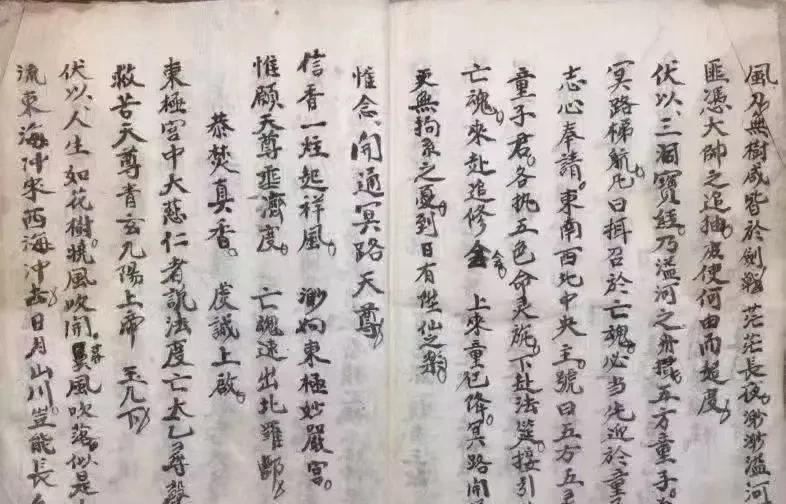 風刀無樹咸皆於劍戟茫茫長夜渺渺溫河
匪憑大帥之追抽及使何由而超度
伏以三洞寶經乃溫河之舟揖五方童子
冥路梯航凡曰揖召於亡魂必當先迎於童
志心奉請東南西北中央主號曰五方五
童子君各执五色命灵旛下赴法筵接引
亡魂來赴追修 上來童子已降冥路開
更無拘系之憂到日有性仙之樂
惟念開通冥路天尊
信香一炷起祥風 渺向東極妙嚴宮
惟願天尊垂濟度 亡魂遠出北羅酆
恭焚真香 虔誠上啟
東極宮中大慈仁者說法度亡太乙尋聲
救苦天尊青玄九陽上帝 至几下
伏以人生如花樹曉風吹開暮風吹落似是
流東海冲來西海冲去日月山川豈能長